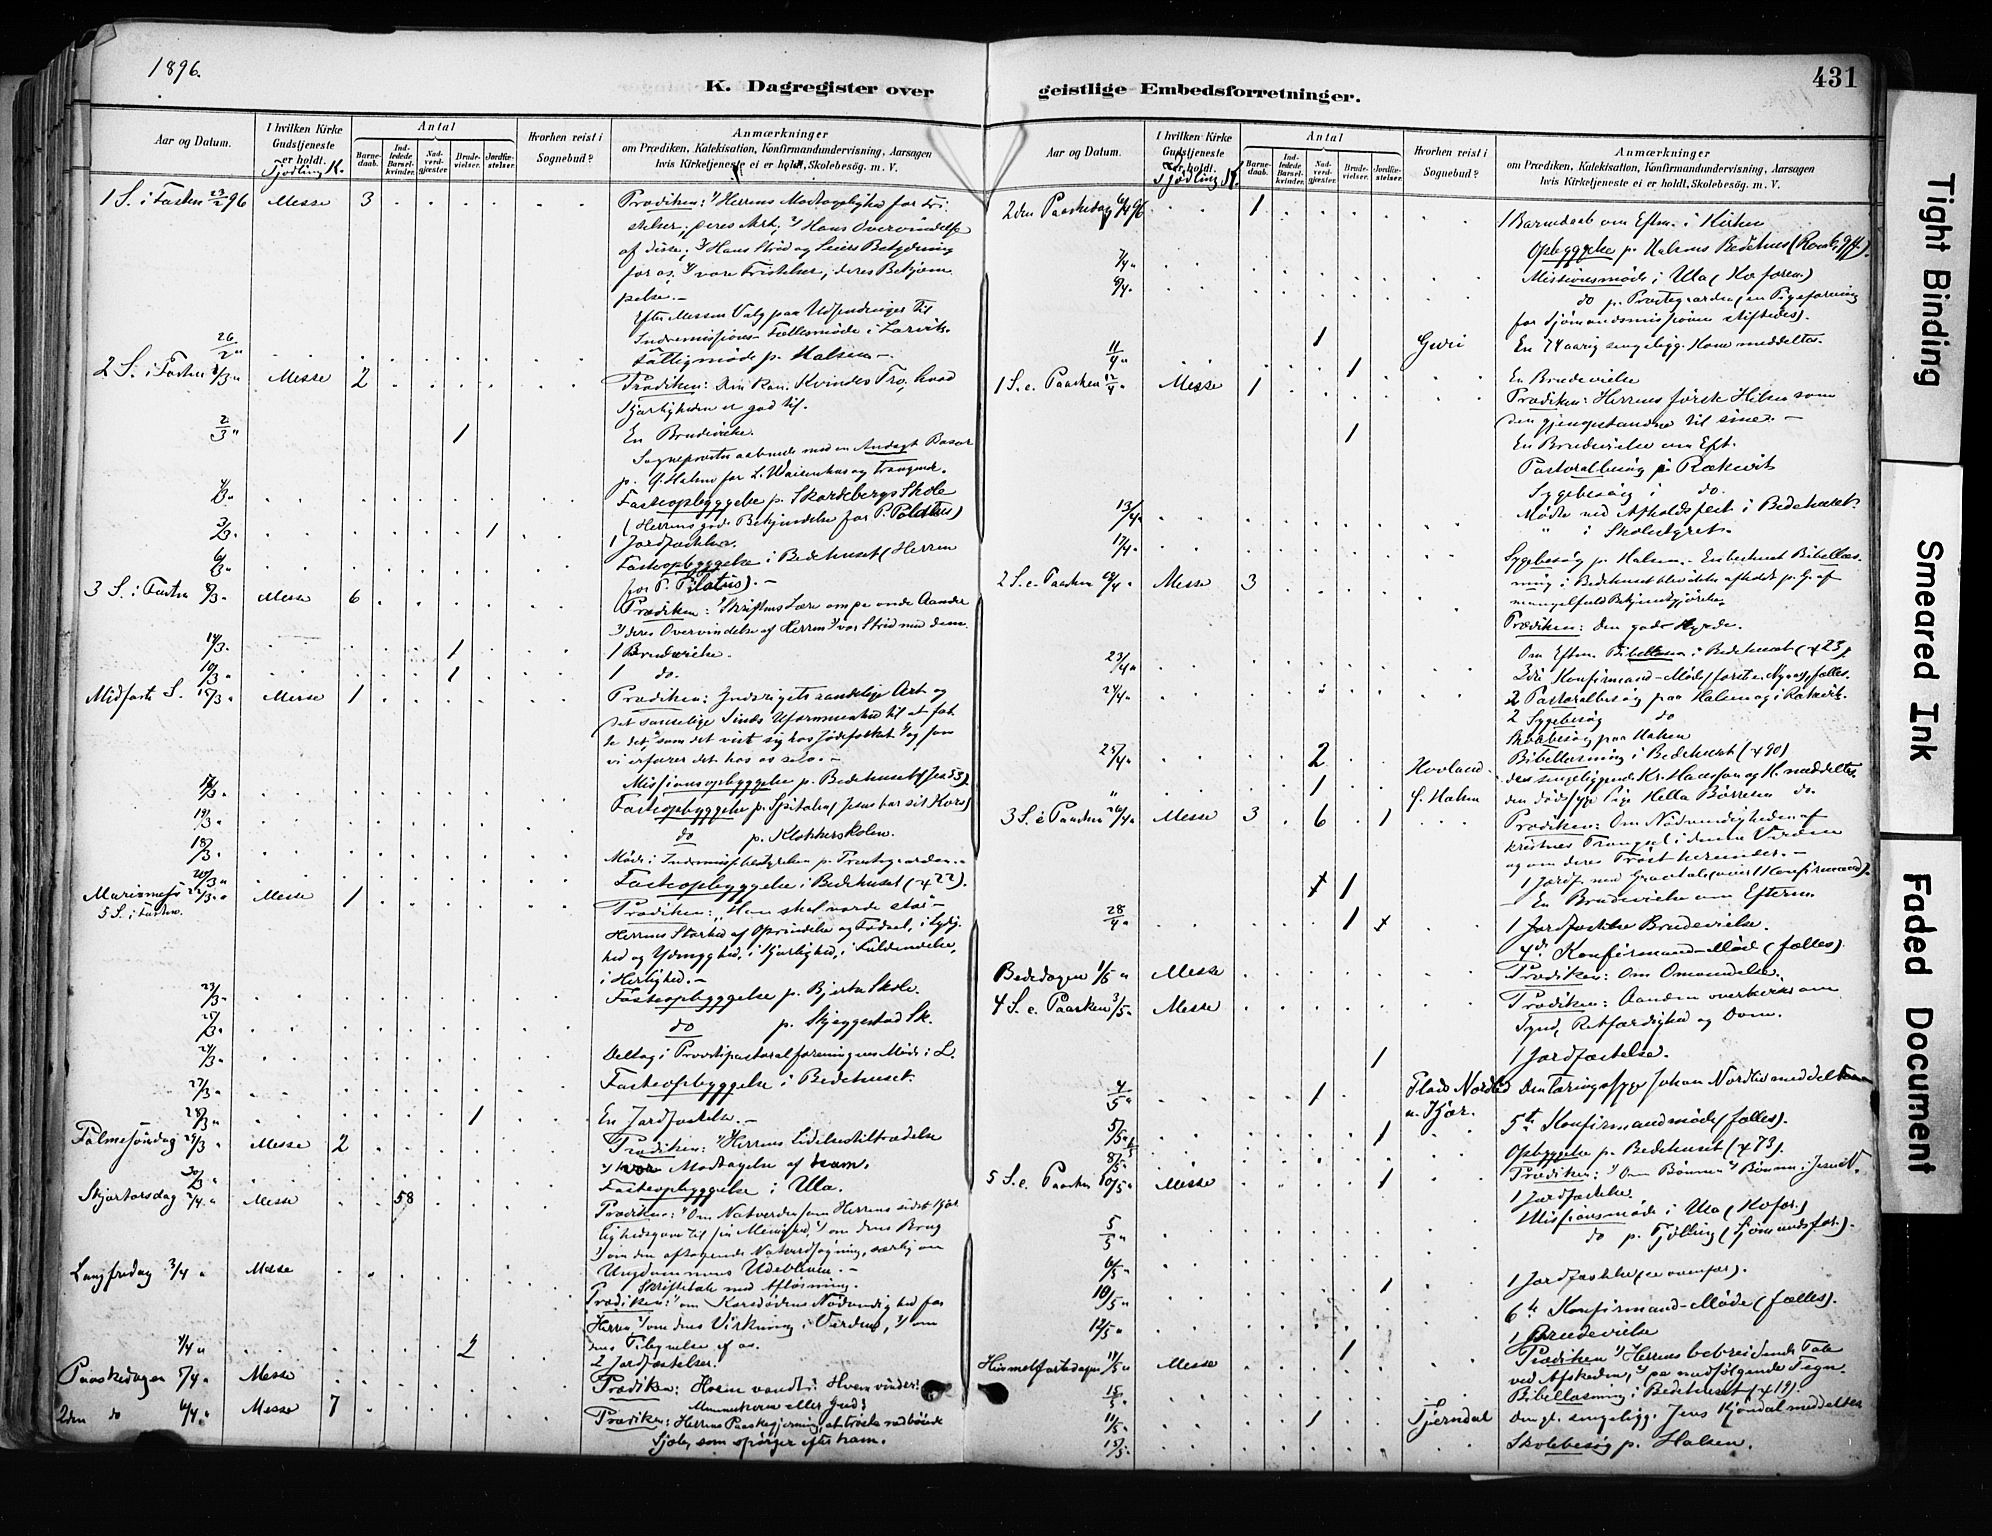 1896.
K. Dagregister over
geistlige Embedsforretninger.
431
Aar og Datum.
I hvilken Kirke Gudstjeneste er holdt.
Tjødling K.
Antal
Barne-daab.
Ind-ledede Barsel-kvinder.
Nad-verd-gjæster
Brude-vielser.
Jordfæ-stelser.
Hvorhen reist i Sognebud?
Anmærkninger
om Prædiken, Katekisation, Konfirmandundervisning, Aarsagen
hvis Kirketjeneste ei er holdt, Skolebesög. m. V.
1 S. i Fasten 23/2 96 Messe 3 Prædiken: 1) Herrens Modtagelighed for Fri-
stelser, deres Art, 2) Hans Overvindelse
af disse, 3) Hans Strid og Seiers Betydning
for os. 4) vore Fristelser, deres Bekjæm-
pelse.-
Efter Messen Valg paa Udsendinger til
Indremissions-Fællesmøde i Larvik.
26/2 " Fattigmøde p. Halsen.-
2 S. i Fasten 1/3 " Messe 2 Prædiken: Den Kan. Kvindes Tro, hvad
Kjærligheden er god til.
2/3 " 1 En Brudevielse.
Sognepresten aabnede med en Andagt Basar
p. G. Halsen for L. Waisenhus og trængende.
4/3 " Fasteopbyggelse p. Skardebergs Skole
(Herrens gode Bekjendelse for P. Pilatus)
5/3 " 1 1 Jordfæstelse.
6/3 " Fasteopbyggelse i Bedehuset (Herren
for P. Pilatus).-
3 S. i Fasten 8/3 " Messe 6 Prædiken: 1) Skriftens Lære om de onde Aander
2) deres Overvindelse af Herren 3) vor Strid med dem.
14/3 " 1 1 Brudevielse.
10/3 " 1 1 do.
Midfaste S. 15/3 " Messe 1 Prædiken: Gudsrigets aandelige Art og
det sanselige Sinds Uformuenhed til at fat-
te det, som det viste sig hos Jødefolket og som
vi erfarer det hos os selv.-
Missionsopbyggelse p. Bedehuset (Jes 53)
Fasteopbyggelse p. Spitalen (Jesus bar sit Kors)
19/3 " do p. Klokkerskolen.
18/3 " Møde i Indremiss.bestyrelsen p. Prestegaarden.-
20/3 " Fasteopbyggelse i Bedehuset (ψ 22).
Mariæmesse 22/3 " Messe 1 Prædiken: "Han skal vorde stor"-
5 S. i Fasten. Herrens Storhed af Oprindelse og Fødsel, i Lydig-
hed og Ydmyghed, i Kjærlighed, i Fuldendelse,
i Herlighed.-
23/3 " Fasteopbyggelse p. Bjerke Skole.
25/3 " do p. Skjeggestad Sk.
24/3 " Deltog i Provstipastoralforeningens Møde i L.
27/3 " Fasteopbyggelse i Bedehuset.
28/3 " 1 En Jordfæstelse.-
Palmesøndag 29/3 " Messe 2 Prædiken: 1) Herrens Lidelsestiltrædelse
2) vor Modtagelse af ham.
30/3 " Fasteopbyggelse i Ula.
Skjærtorsdag 2/4 " Messe 58 Prædiken: 1) Om Nadverden som Herrens sidste Kjær-
lighedsgave til sin Menighed, 2) om dens Brug
3) om den aftagende Nadverdsøgning, særlig om
Ungdommens Udebliven.-
Langfredag 3/4 " Messe Skriftetale med Afløsning.
Prædiken: 1) om Korsdødens Nødvendighed for
Herren 2) om dens Virkning i Verden, 3) om
dens Tilegnelse af os.
4/4 " 2 2 Jordfæstelser.
Paaskedagen 5/4 " Messe Prædiken: Hvem vandt? Hvem vinder?
Menneskene eller Gud?
2den do 6/4 " Messe 7 Prædiken: Herrens Paaskegjerning, at trøste nedbøiede
Sjæle, som spørger efter ham.
Aar og Datum.
I hvilken Kirke Gudstjeneste er holdt.
Tjødling K.
Antal
Barne-daab.
Ind-ledede Barsel-kvinder.
Nad-verd-gjæster
Brude-vielser.
Jordfæ-stelser.
Hvorhen reist i Sognebud?
Anmærkninger
om Prædiken, Katekisation, Konfirmandundervisning, Aarsagen
hvis Kirketjeneste ei er holdt, Skolebesög. m. V.
2den Paaskedag 6/4 96 1 1 Barnedaab om Eftm. i Kirken
Opbyggelse p. Halsens Bedehus
7/4 " Missionsmøde i Ula (Kv. foren.)
8/4 " do p. Prestegaarden (en Pigeforening
for Sjømandsmissionen stiftedes).
1 Gurri En 74 aarig sengeligg. Kone meddeltes.
11/4 " 1 En Brudevielse
1 S. e. Paasken 12/4 " Messe 1 Prædiken: Herrens første Hilsen som
den gjenopstandne til sine.-
1 En Brudevielse om Eft.
Pastoralbesøg i Rækevik
Sygebesøg i do.
13/4 " Møde ved Afholdsfest i Bedehuset
" i Skolestyret.
17/4 " Sygebesøg p. Halsen. En berammet Bibellæs-
ning i Bedehuset blev ikke afholdt p. G. af
mangelfuld Bekjendtgjørelse.
2 S. e. Paasken 19/4 " Messe 3 Prædiken: Den gode Hyrde.
Om Eftm. Bibellæsn. i Bedehuset (ψ 23)
23/4 " 3die Konfirmand-Møde fælles.
24/4 " 2 Pastoralbesøg paa Halsen og i Rækevik.
2 Sygebesøg do
Skolebesøg paa Halsen
Bibellæsning i Bedehuset (ψ 90)
25/4 " 2 Hovland den sengeliggende Kr. Hansson og H. meddeltes.
" 1 G. Halsen den dødssyge Pige Hella Børresen do.
3 S. e. Paasken 26/4 " Messe 3 6 1 Prædiken: Om Nødvendigheden af
kristnes Trængsel i denne Verden
og om deres Trøst herunder.-
1 Jordf. med Gravtale (over 1 Konfirmand)
1 En Brudevielse om Efterm.
28/4 " 1 1 Brudevielse.
4de Konfirmand-Møde (fælles).
Bededagen 1/5 " Messe Prædiken: Om Omvendelse.
4 S. e. Paasken 3/5 " Messe Prædiken: Aanden overbeviser om
Synd, Retfærdighed og Dom.
1 1 Jordfæstelse.
4/5 " 1 Plads Nordlid u. Kjær. Den tæringssyge Johan Nordlid meddeltes
5/5 " 1 5te Konfirmandmøde (fælles).
8/5 " Opbyggelse p. Bedehuset (ψ 73).
5 S. e. Paasken 10/5 " Messe 1 Prædiken: 1) Om Bønnen 2) Bønnen i Jesu N.
1 Jordfæstelse.
Missionsmøde i Ula (Kv for.)
5/5 " do p. Tjølling (Sjømandsfor.).
6/5 " 1 Jordfæstelse (se ovenfor).
10/5 " 1 6te Konfirmand-Møde (fælles).
12/5 " 1 Brudevielse
Himmelfartsdagen 14/5 " Messe 1 Prædiken 1) Herrens bebreidende Tale
ved Afskeden, 2) de medfølgende Tegn.
15/5 " Bibellæsning i Bedehuset (ψ 19).
11/5 " 1 Tjerndal Den gl. sengeligg. Jens Kjøndal meddeltes
15/5 " Skolebesøg p. Halsen.
Tight Binding
Smeared Ink
Faded Document